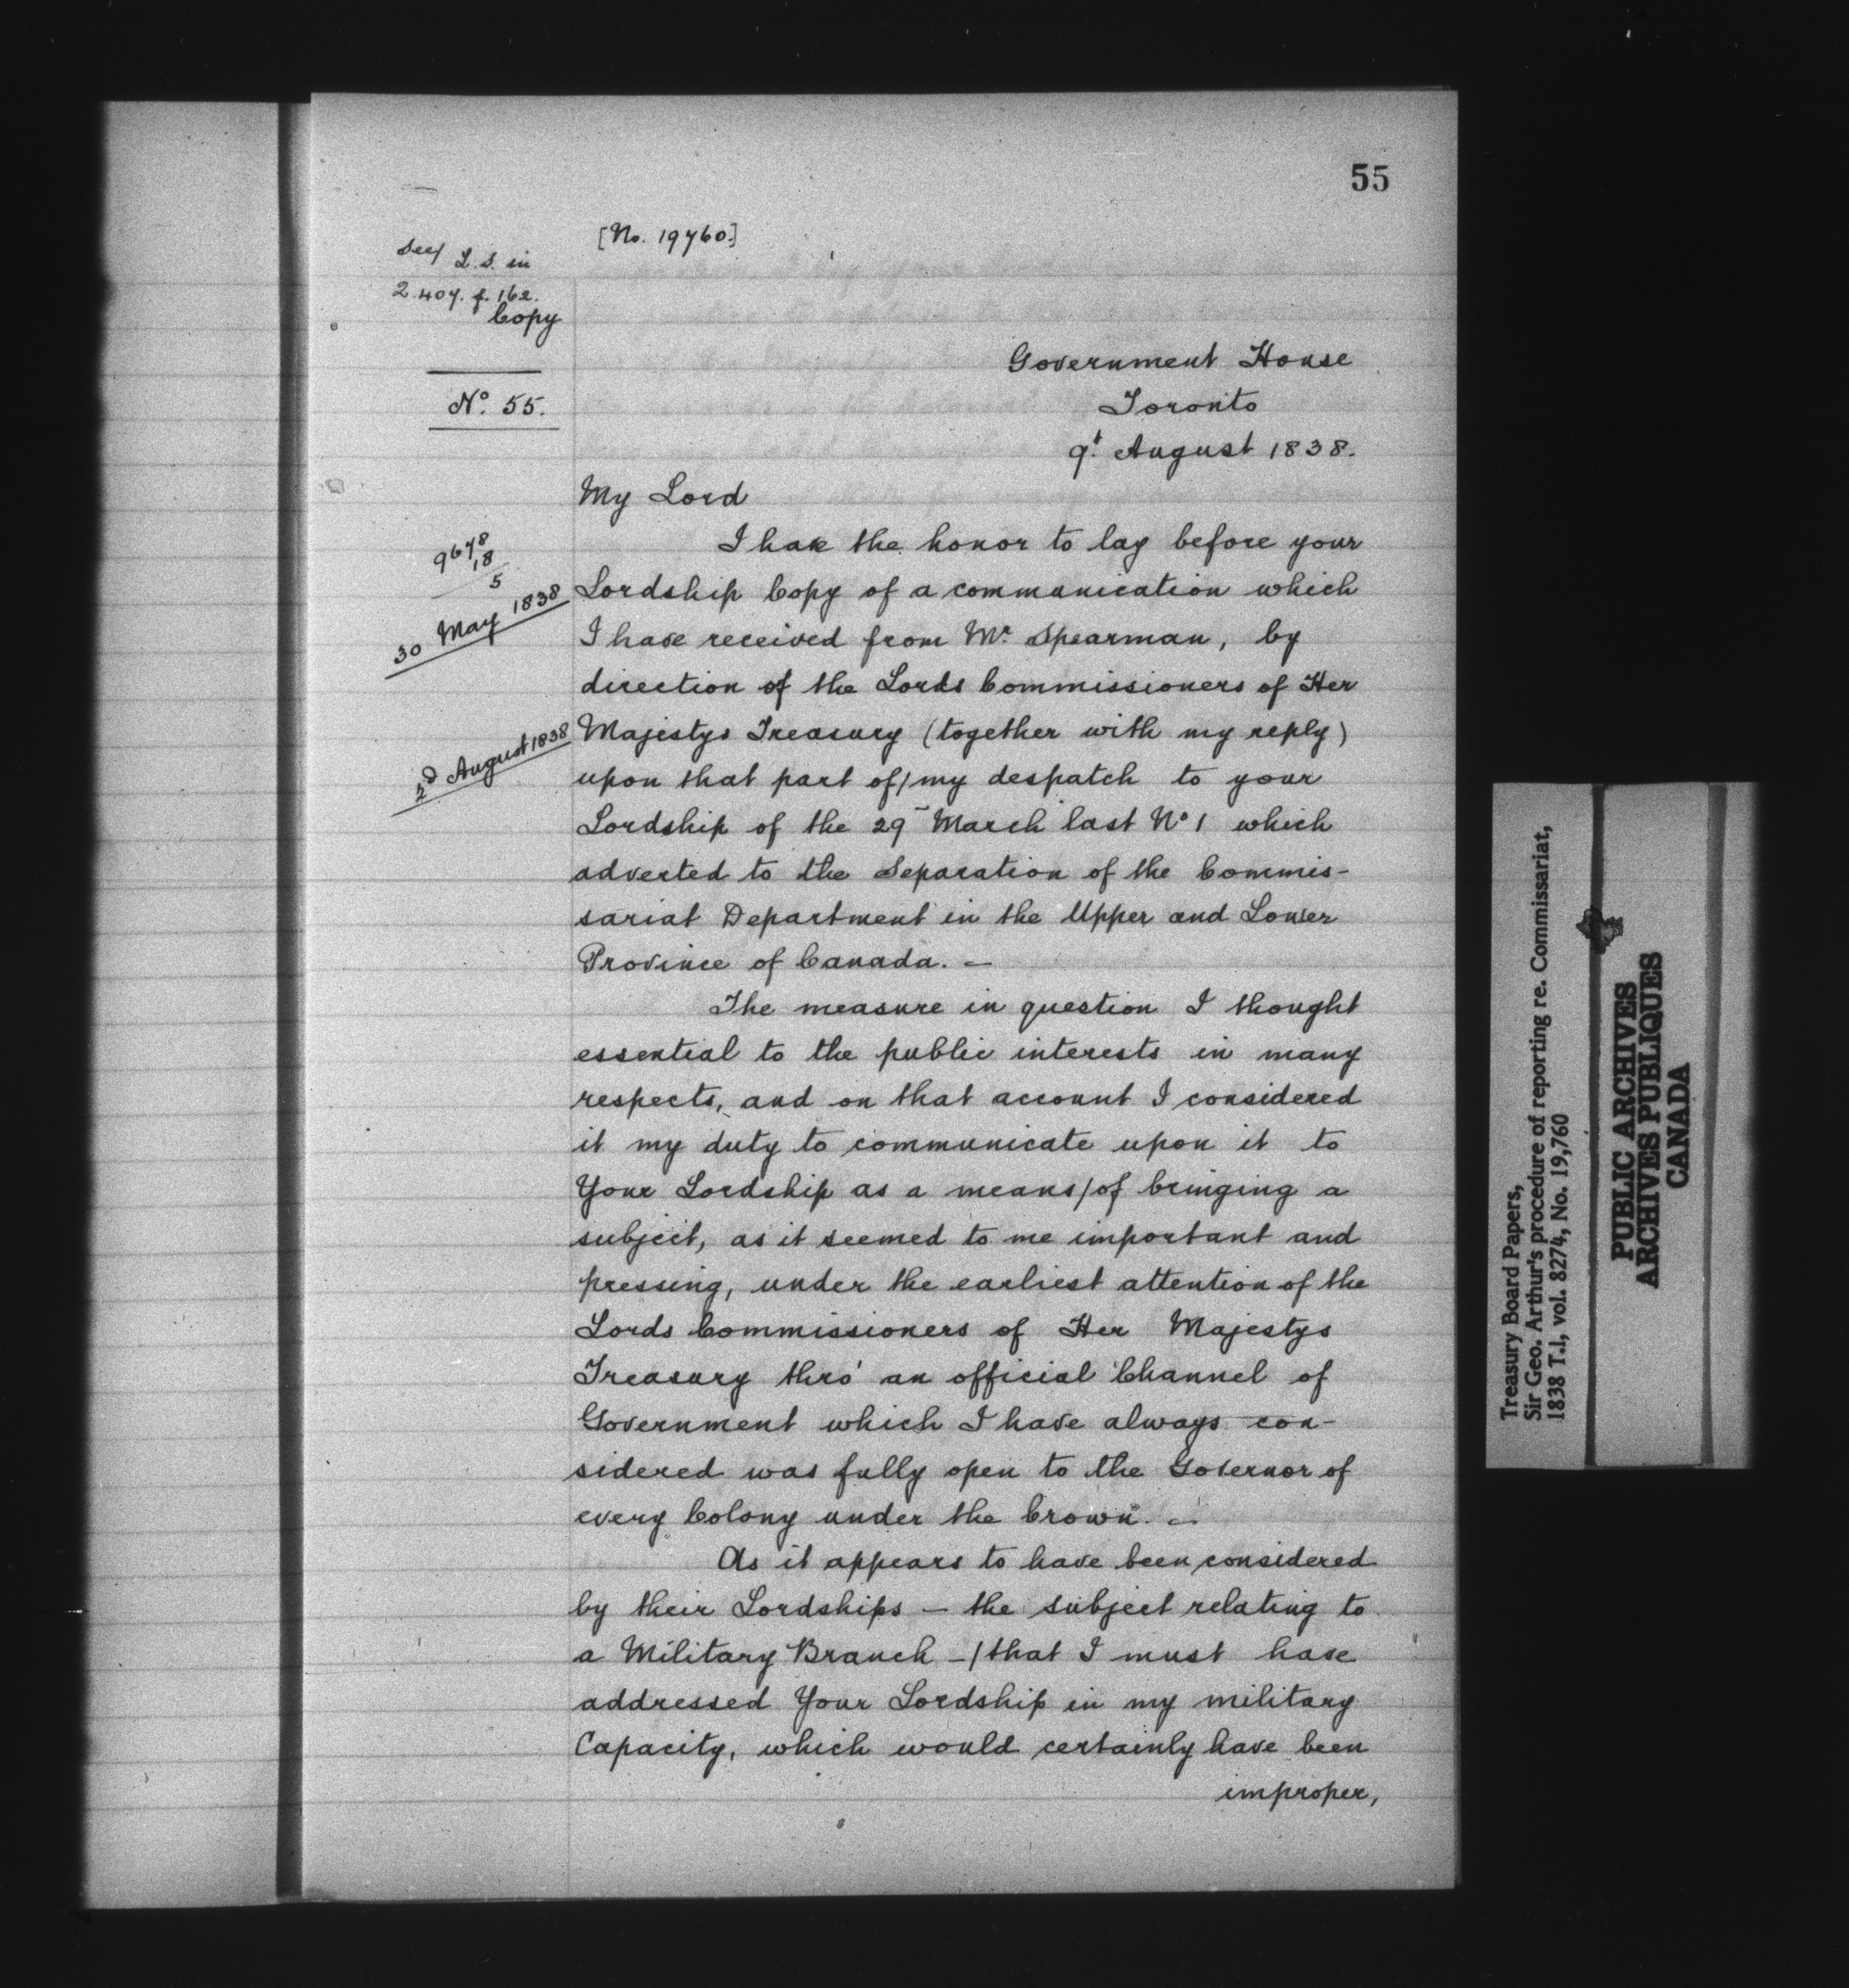 55
[No. 19760.]
See/ L.S. in
2.407. f. 162.
Copy
Government House
Toronto
No. 55.
9t. August 1838.
My Lord
I have the honor to lay before your
9678
18
5
30 May 1838
Lordship Copy of a communication which
I have received from Mr. Spearman, by
direction of the Lords Commissioners of Her
2d August 1838
Majestys Treasury (together with my reply)
upon that part of/my despatch to your
Lordship of the 29 March last No 1 which
adverted to the Separation of the Commis-
sariat Department in the Upper and Lower
Province of Canada. —
The measure in question I thought
essential to the public interests in many
respects, and on that account I considered
it my duty to communicate upon it to
Your Lordship as a means/of bringing a
subject, as it seemed to me important and
pressing, under the earliest attention of the
Lords Commissioners of Her Majestys
Treasury thro' an official Channel of
Government which I have always con-
sidered was fully open to the Governor of
every Colony under the Crown. —
As it appears to have been considered
by their Lordships — the subject relating to
a Military Branch —/that I must have
addressed Your Lordship in my military
Capacity, which would certainly have been
improper,
Treasury Board Papers,
Sir Geo. Arthur's procedure of reporting re. Commissariat,
1838 T.1, vol. 8274, No. 19,760
PUBLIC ARCHIVES
ARCHIVES PUBLIQUES
CANADA